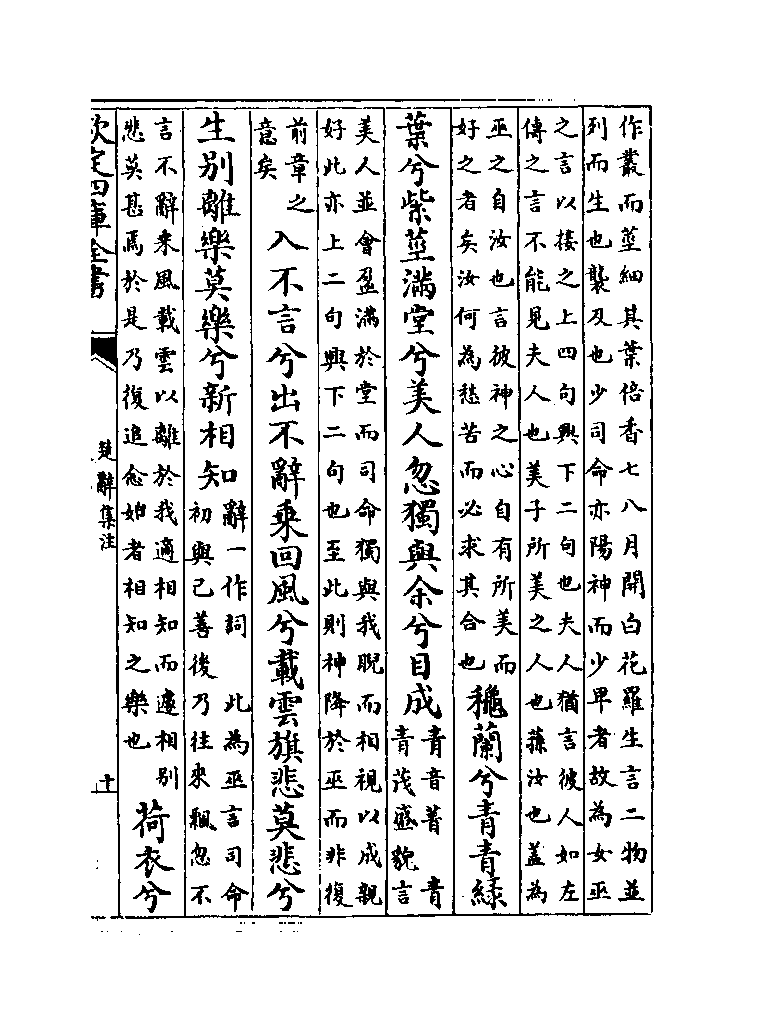 作叢而莖細其葉倍香七八月開白花羅生言二物並
列而生也襲及也少司命亦陽神而少卑者故為女巫
之言以接之上四句興下二句也夫人猶言彼人如左
傳之言不能見夫人也美子所美之人也蓀汝也蓋為
巫之自汝也言彼神之心自有所美而
好之者矣汝何為愁苦而必求其合也
穐蘭兮青青綠
葉兮紫莖滿堂兮美人忽獨與余兮目成
青音菁 青
青茂盛貌言
美人並會盈滿於堂而司命獨與我睨而相視以成親
好此亦上二句興下二句也至此則神降於巫而非復
前章之
意矣
入不言兮出不辭乘回風兮載雲旗悲莫悲兮
生別離樂莫樂兮新相知
辭一作詞 此為巫言司命
初與己善後乃往來飄忽不
言不辭乘風載雲以離於我適相知而遽相別
悲莫甚焉於是乃復追念始者相知之樂也
荷衣兮
欽定四庫全書
楚辭集注
十